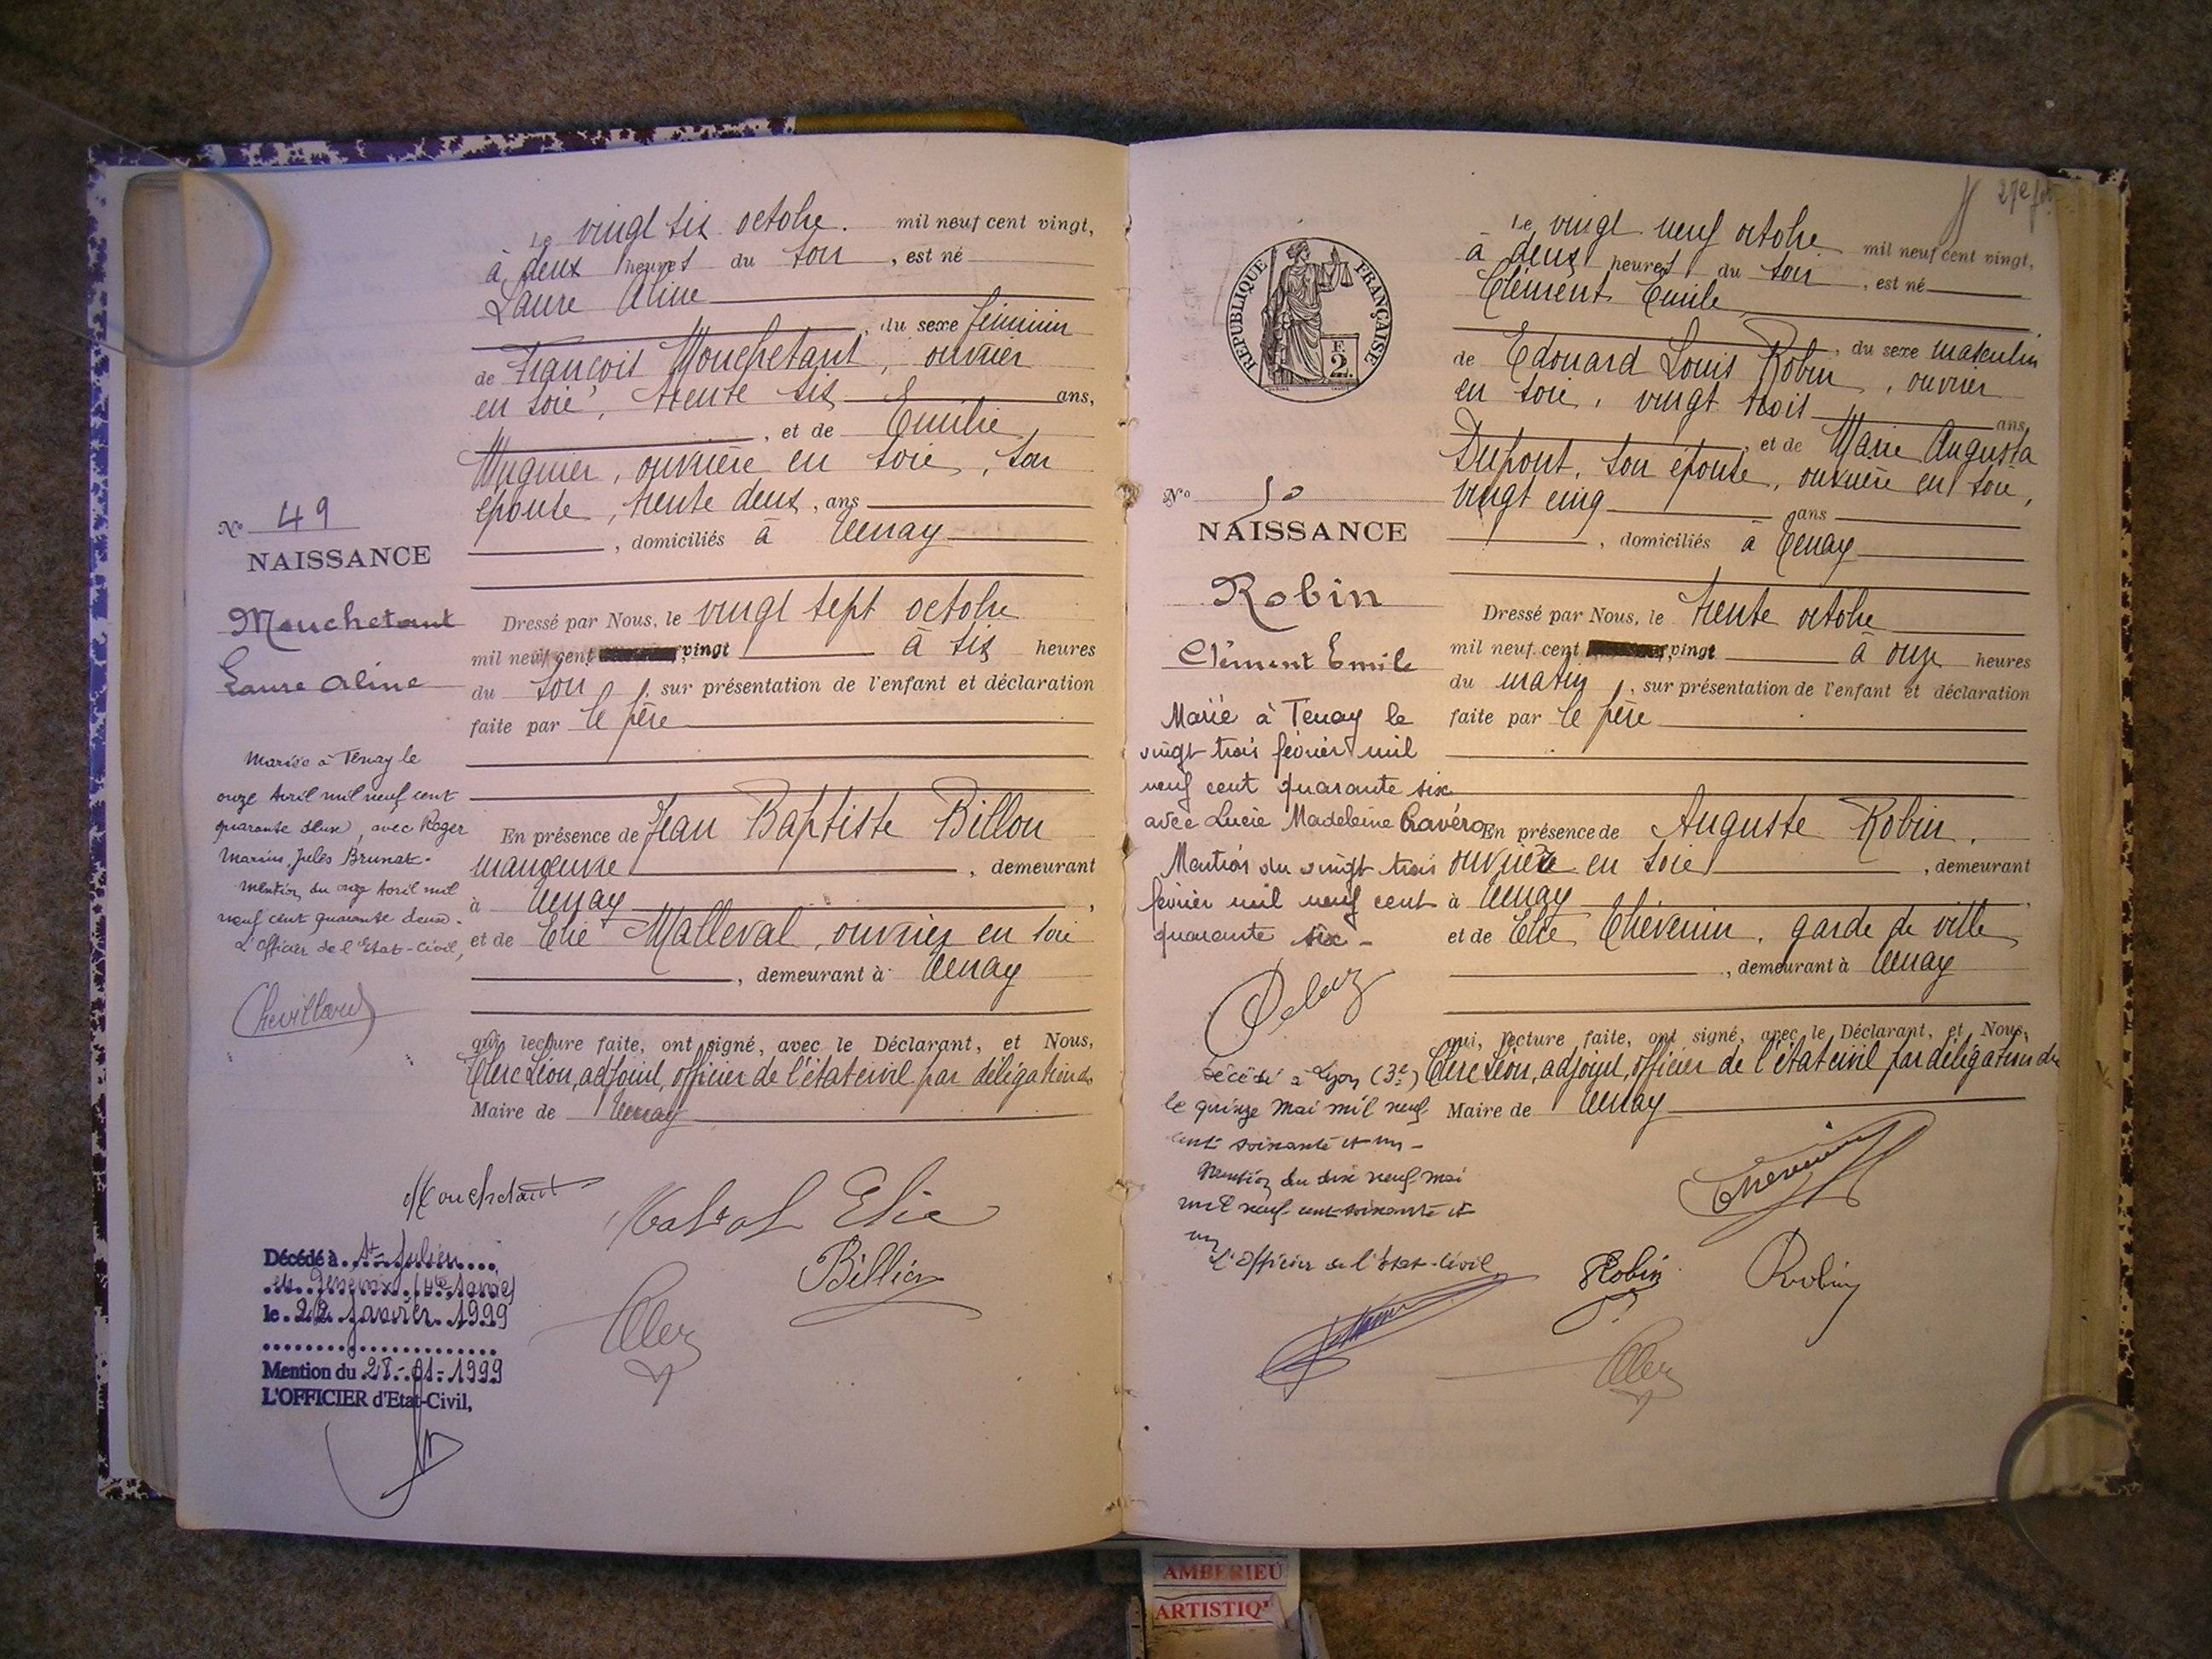 Le vingt six octobre. mil neuf cent vingt,
à deux heures du soir, est né
Laure Aline
, du sexe féminin
de François Mouchetant, ouvrier
en soie, trente six ans,
, et de Emilie
Mugnier, ouvrière en soie, son
épouse, trente deux, ans
, domiciliés à Tenay
No 49
NAISSANCE
Mouchetant
Laure Aline
Dressé par Nous, le vingt sept octobre
mil neuf cent vingt à six heures
du soir, sur présentation de l'enfant et déclaration
faite par le père
Mariée à Tenay le
onze Avril mil neuf cent
quarante deux, avec Roger
Marius, Jules Brunet.
Mention du onze Avril mil
neuf cent quarante deux.
L'Officier de l'Etat-Civil,
Chevillard
En présence de Jean Baptiste Billon
manœuvre, demeurant
à Tenay,
et de Elie Malleval, ouvrier en soie
, demeurant à Tenay
qui, lecture faite, ont signé, avec le Déclarant, et Nous,
Clerc Léon, adjoint, officier de l'état civil par délégation du
Maire de Tenay
Mouchetant
Elie
Billion
Clerc
Décédé à St-Julien
en Genevois (Hte-Savoie)
le 22 janvier 1999
Mention du 28-01-1999
L'OFFICIER d'Etat-Civil,
27e fet
REPUBLIQUE FRANÇAISE
F.
2
Le vingt neuf octobre mil neuf cent vingt,
à deux heures du soir, est né
Clément Emile
, du sexe masculin
de Edouard Louis Robin, ouvrier
en soie, vingt trois ans,
, et de Marie Augusta
Dupont, son épouse, ouvrière en soie,
vingt cinq ans
, domiciliés à Tenay
No 50
NAISSANCE
Robin
Clément Emile
Dressé par Nous, le trente octobre
mil neuf cent vingt à onze heures
du matin, sur présentation de l'enfant et déclaration
faite par le père
Marié à Tenay le
vingt trois février mil
neuf cent quarante six
avec Lucie Madeleine Cravéro
Mention du vingt trois
février mil neuf cent
quarante six -
En présence de Auguste Robin.
ouvrière en soie, demeurant
à Tenay
et de Elie Thévenin, garde de ville
, demeurant à Tenay
qui, lecture faite, ont signé, avec le Déclarant, et Nous,
Clerc Léon, adjoint, officier de l'état civil par délégation du
Maire de Tenay
Décédé à Lyon (3e)
le quinze Mai mil neuf
cent soixante et un -
Mention du dix neuf mai
mil neuf cent soixante et
un
L'Officier de l'Etat-Civil,
Thévenin
Robin
Robin
Clerc
AMBERIEU
ARTISTIQ